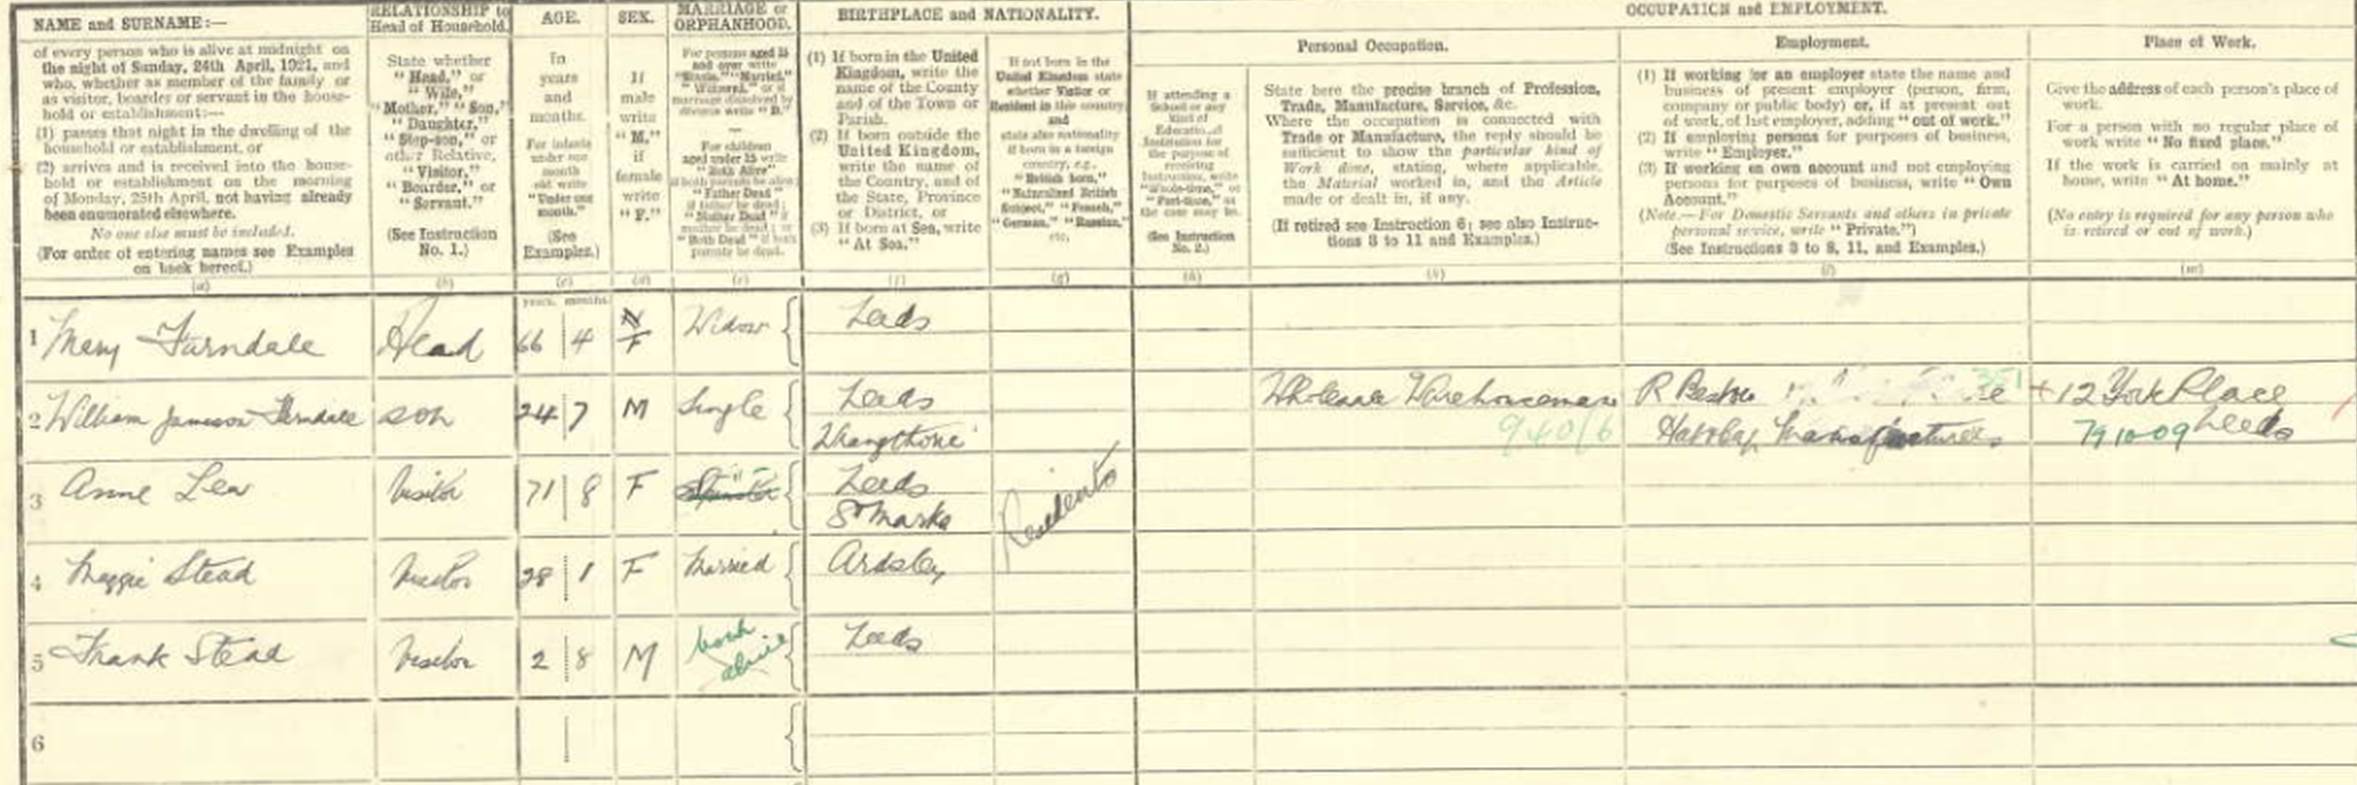 NAME and SURNAME:—
of every person who is alive at midnight on
the night of Sunday, 24th April, 1921, and
who, whether as member of the family or
as visitor, boarder or servant in the house-
hold or establishment:—
(1) passes that night in the dwelling of the
household or establishment, or
(2) arrives and is received into the house-
hold or establishment on the morning
of Monday, 25th April, not having already
been enumerated elsewhere.
No one else must be included.
(For order of entering names see Examples
on back hereof.)
(a)
RELATIONSHIP to
Head of Household.
State whether
"Head," or
"Wife,"
"Mother," "Son,"
"Daughter,"
"Step-son," or
other Relative,
"Visitor,"
"Boarder," or
"Servant."
(See Instruction
No. 1.)
(b)
AGE.
In
years
and
months.
For infants
under one
month
old write
"Under one
month."
(See
Examples.)
(c)
years. months.
SEX.
If
male
write
"M."
if
female
write
"F."
(d)
MARRIAGE or
ORPHANHOOD.
For persons aged 15
and over write
"Single," "Married,"
"Widowed," or if
marriage dissolved by
divorce write "D."
For children
aged under 15 write
"Both Alive"
if both parents be alive;
"Father Dead"
if father be dead;
"Mother Dead" if
mother be dead; or
"Both Dead" if both
parents be dead.
(e)
BIRTHPLACE and NATIONALITY.
(1) If born in the United
Kingdom, write the
name of the County
and of the Town or
Parish.
(2) If born outside the
United Kingdom,
write the name of
the Country, and of
the State, Province
or District, or
(3) If born at Sea, write
"At Sea."
(f)
If not born in the
United Kingdom state
whether Visitor or
Resident in this country
and
state also nationality
if born in a foreign
country, e.g.,
"British born,"
"Naturalized British
Subject," "French,"
"German," "Russian,"
etc.
(g)
OCCUPATION and EMPLOYMENT.
Personal Occupation.
If attending a
School or any
kind of
Educational
Institution for
the purpose of
receiving
Instruction, write
"Whole-time," or
"Part-time," as
the case may be.
(See Instruction
No. 2.)
(h)
State here the precise branch of Profession,
Trade, Manufacture, Service, &c.
Where the occupation is connected with
Trade or Manufacture, the reply should be
sufficient to show the particular kind of
Work done, stating, where applicable,
the Material worked in, and the Article
made or dealt in, if any.
(If retired see Instruction 6; see also Instruc-
tions 3 to 11 and Examples.)
Employment.
(1) If working for an employer state the name and
business of present employer (person, firm,
company or public body) or, if at present out
of work, of last employer, adding "out of work."
(2) If employing persons for purposes of business,
write "Employer."
(3) If working on own account and not employing
persons for purposes of business, write "Own
Account."
(Note.—For Domestic Servants and others in private
personal service, write "Private.")
(See Instructions 3 to 8, 11, and Examples.)
(l)
Place of Work.
Give the address of each person's place of
work.
For a person with no regular place of
work write "No fixed place."
If the work is carried on mainly at
home, write "At home."
(No entry is required for any person who
is retired or out of work.)
(m)
1 Mary Farndale Head 66 4 F Widow Leeds
2 William Jameson Farndale son 24 7 M Single Leeds
Wholesale Warehouseman R 351 + 12 York Place
940/6 Manufacturers 791009 Leeds
3 Anne Visitor 71 8 F Leeds
St Marks
Residents
4 Maggie Stead Visitor 28 1 F Married Ardsley
5 Frank Stead Visitor 2 8 M both
alive Leeds
6